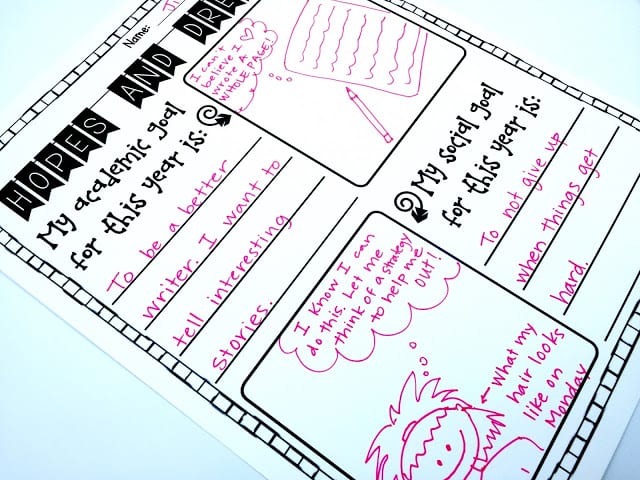 Name:
HOPES AND
My academic goal
for this year is:
To be a better
writer. I want to
tell interesting
stories.
I can't
believe I
wrote a
WHOLE PAGE!
My social goal
for this year is:
To not give up
when things get
hard.
I know I can
do this. Let me
think of a strategy
to help me
out!
What my
hair looks
like on
Monday